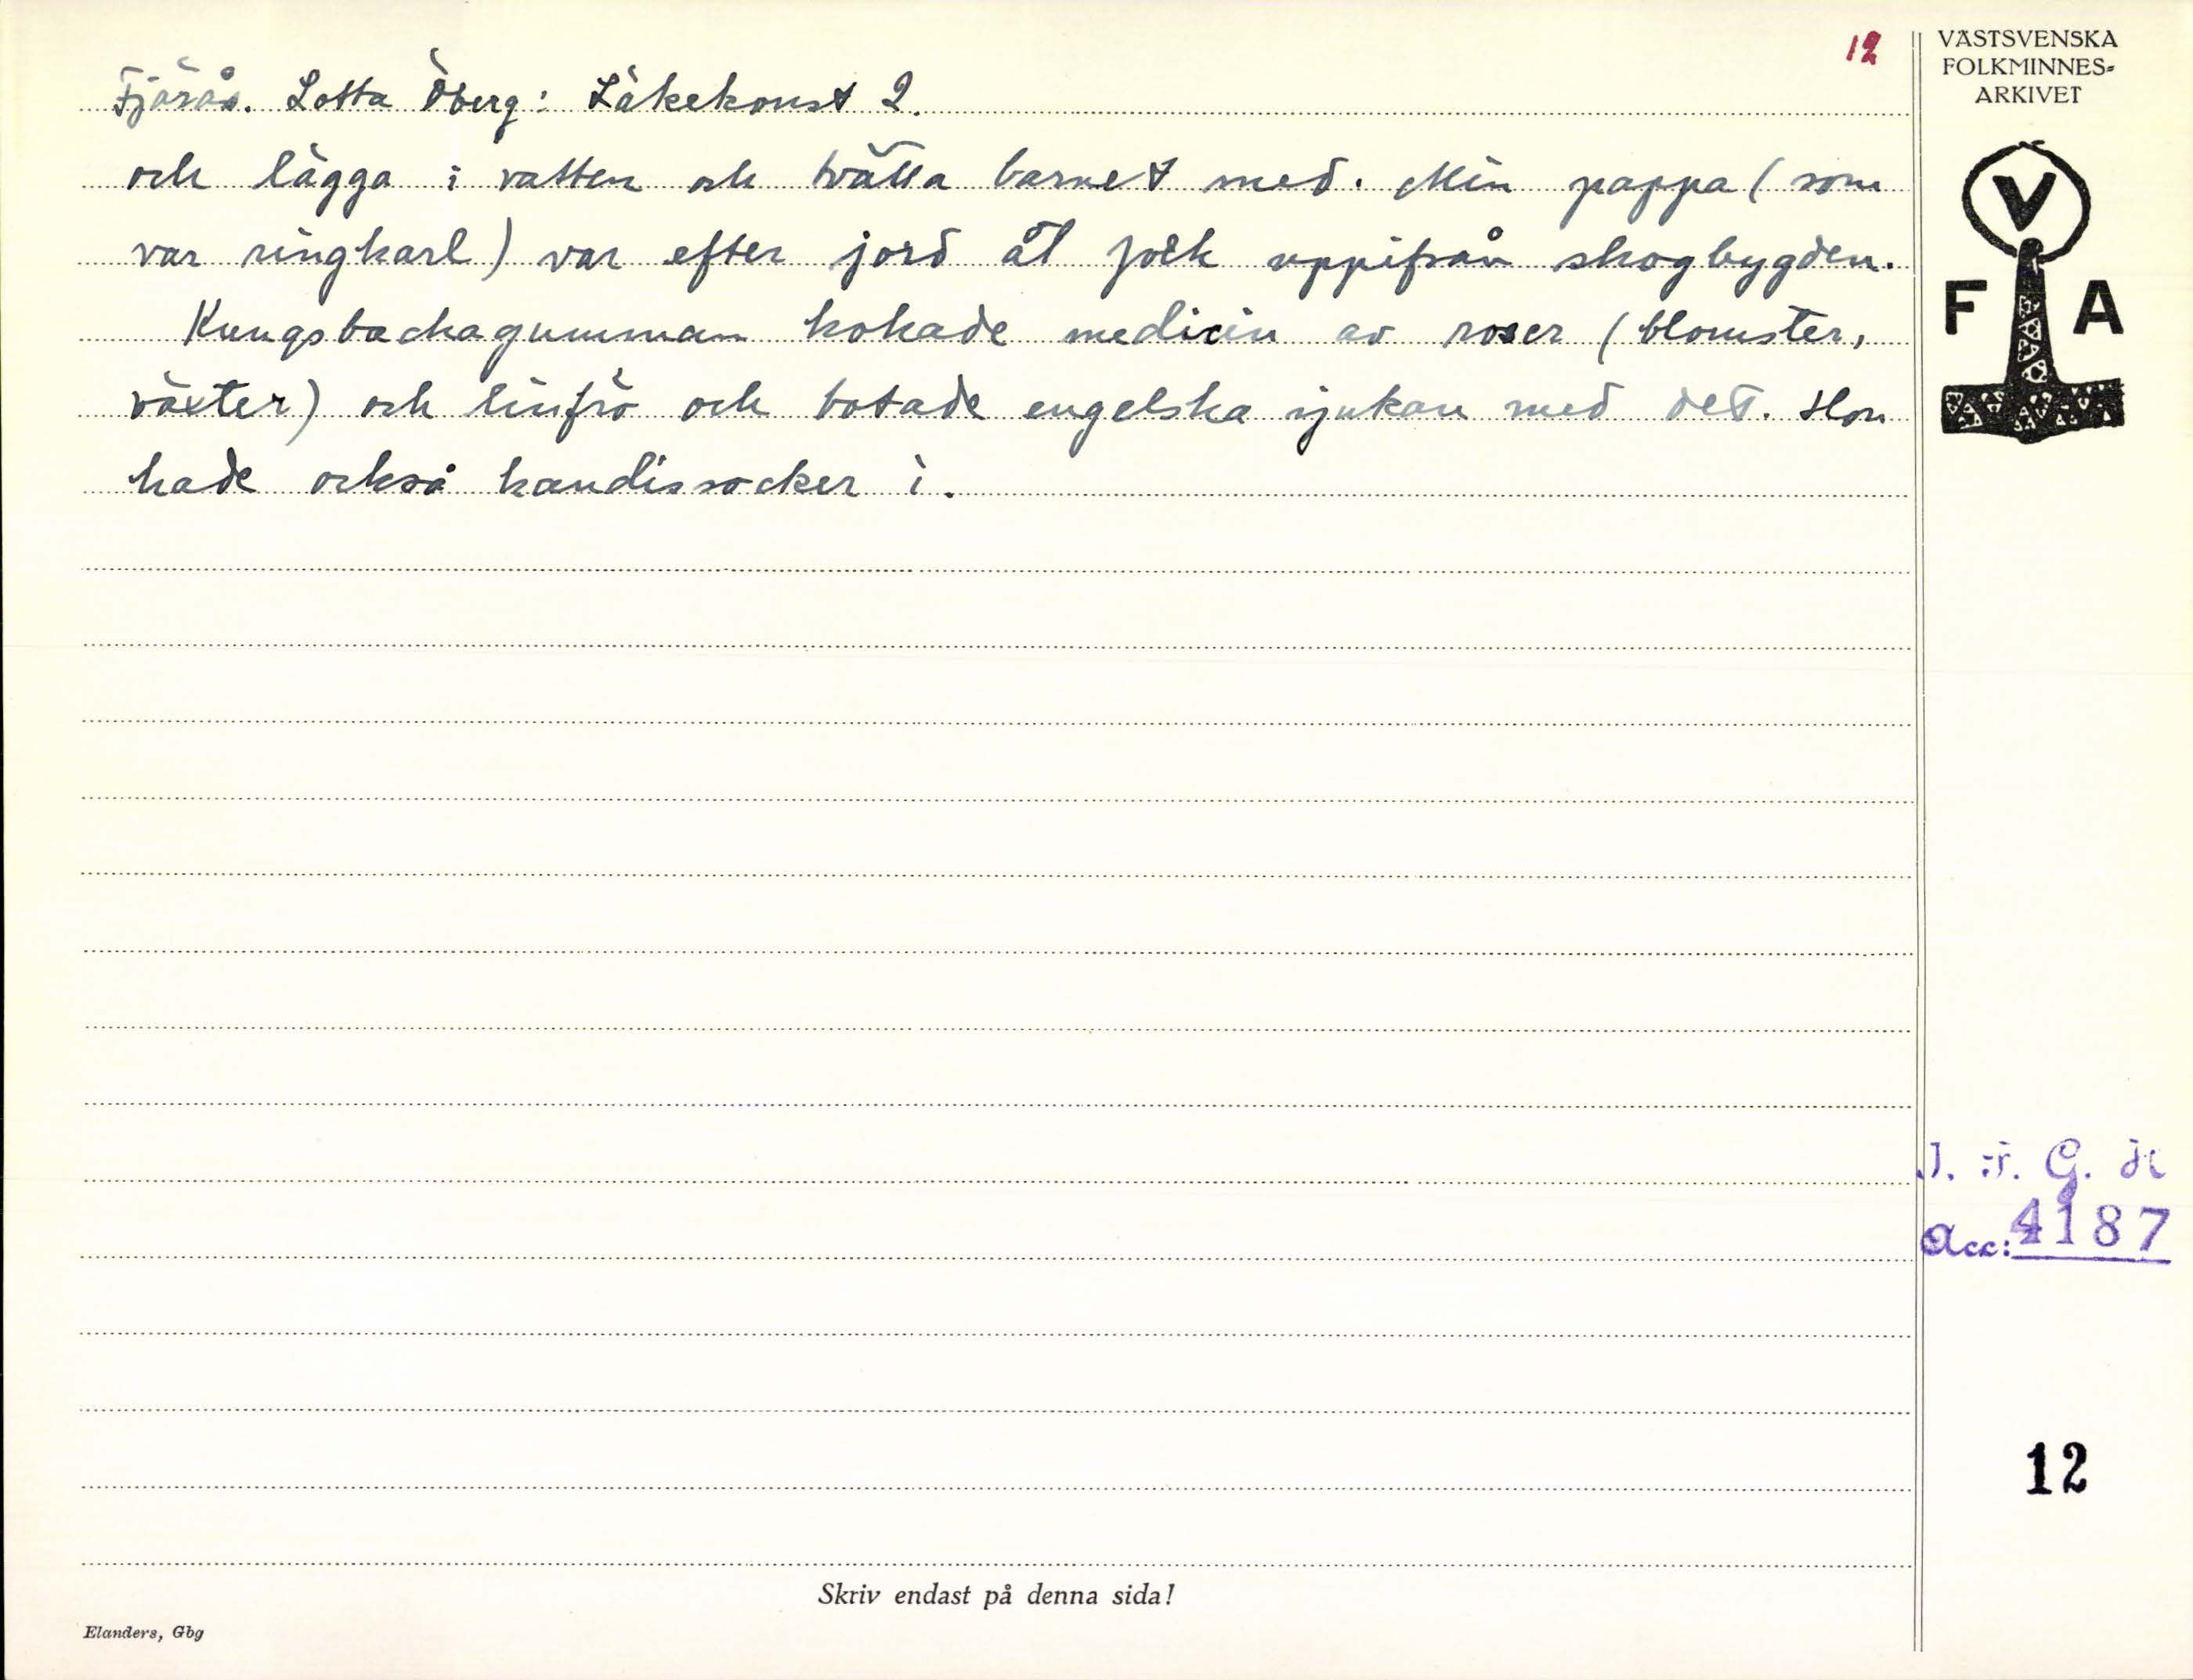 12
Fjärås. Lotta Öberg: Läkekonst 2.
och lägga i vatten och tvätta barnet med. Min pappa (som
var ringkarl) var efter jord åt folk uppifrån skogbygden.
Kungsbackagumman kokade medicin av roser (blomster,
växter) och linfrö och botade engelska sjukan med det. Hon
hade också kandissocker i.
VÄSTSVENSKA
FOLKMINNES-
ARKIVET
V
F A
I. F. G. H
Acc: 4187
12
Skriv endast på denna sida!
Elanders, Gbg